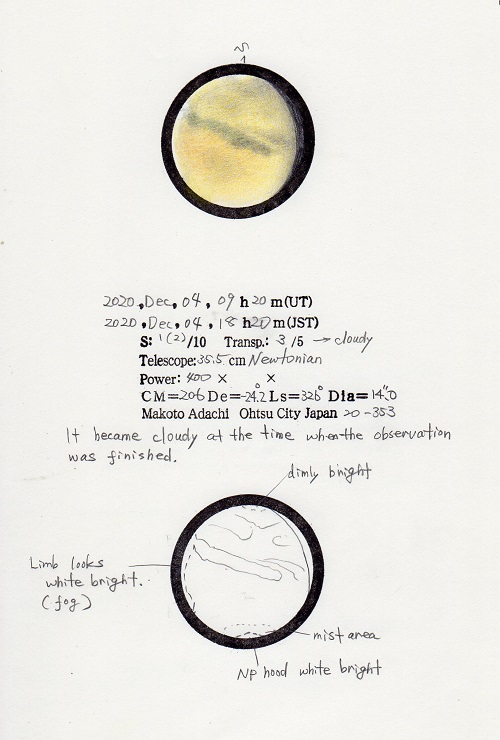 S
2020, Dec, 04, 09 h 20 m (UT)
2020, Dec, 04, 18 h 20 m (JST)
S: 1(2)/10 Transp.: 3 /5 → cloudy
Telescope: 35.5 cm Newtonian
Power: 400 × ×
CM=206 De=-24.2° Ls=326° Dia=14".0
Makoto Adachi Ohtsu City Japan 20-353
It became cloudy at the time when the observation
was finished.
dimly bright
Limb looks
white bright.
(fog)
mist area
NP hood white bright